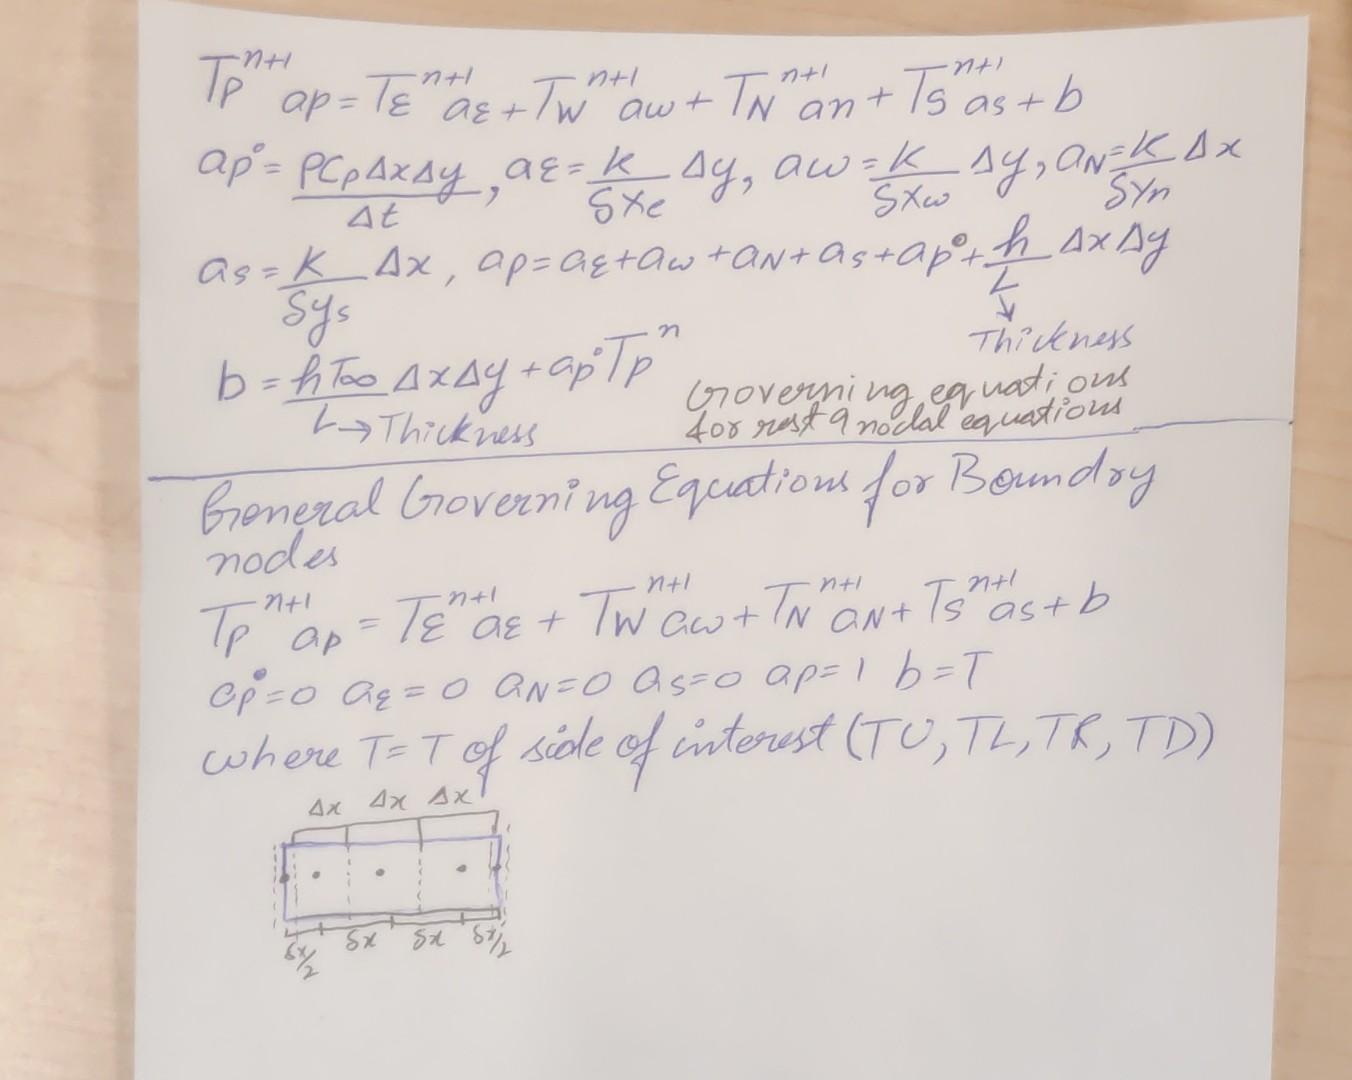 Tp^n+1 ap = TE^n+1 aE + TW^n+1 aw + TN^n+1 an + TS^n+1 as + b
ap° = ρCpΔxΔy/Δt, aE = k/δxe Δy, aw = k/δxw Δy, aN = k/δyn Δx
as = k/δys Δx, ap = aE + aw + aN + as + ap° + h/L ΔxΔy
Thickness
b = hT∞/L ΔxΔy + ap°Tp^n
L → Thickness
Governing equations
for rest 9 nodal equations
General Governing Equations for Boundry
nodes
Tp^n+1 ap = TE^n+1 aE + TW^n+1 aw + TN^n+1 aN + TS^n+1 as + b
ap° = 0 aE = 0 aN = 0 as = 0 ap = 1 b = T
where T = T of side of interest (TU, TL, TR, TD)
Δx Δx Δx
δx/2 δx δx δx/2